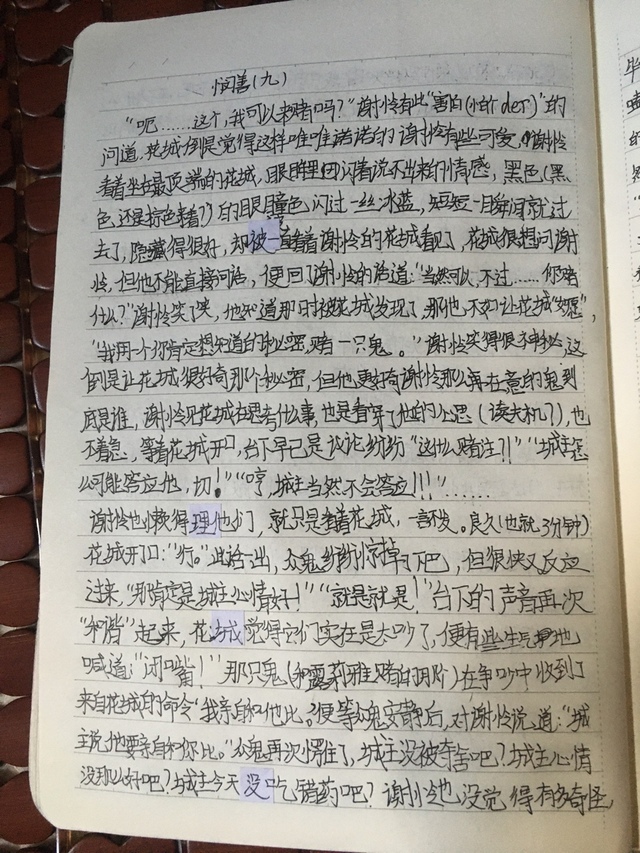 悯善（九）
“呃……这个，我可以来赌吗？”谢怜有些“害白(怕der)”的
问道，花城倒是觉得这样唯唯诺诺的谢怜有些可爱，谢怜
看着坐在最顶端的花城，眼睛里闪着说不出来的情感，黑色（黑
色，还是棕色来着？）的眼瞳色闪过一丝冰蓝，短短一瞬间就过
去了，隐藏得很好，却被一直看着谢怜的花城看见了，花城很想问谢
怜，但他不能直接问话，便回了谢怜的话道：“当然可以，不过……你赌
什么？”谢怜笑了笑，他知道那时被花城发现了，那他不如让花城
“我用一个你肯定想知道的秘密，赌一只鬼。”谢怜笑得很神秘，这
倒是让花城很好奇那个秘密，但他更好奇谢怜那么再在意的鬼到
底是谁，谢怜见花城在思考什么事，也是看穿了他的心思（读夫机？），也
不着急，等着花城开口，台下早已是议论纷纷“这什么赌注？！”“城主怎
么可能答应他，切！”“哼，城主当然不会答应！！”……
谢怜也懒得理他们，就只是看着花城，一言不发。良久（也就3分钟）
花城开口：“行。”此话一出，众鬼纷纷惊掉了下巴，但很快又反应
过来，“那肯定是城主心情好！”“就是就是！”台下的声音再次
“和谐”起来，花城觉得它们实在是太吵了，便有些生气地
喊道：“闭嘴！”那只鬼（和露莉雅赌的那阶）在争吵中收到了
来自花城的命令“我亲自和他比。”便等众鬼安静后，对谢怜说道：“城
主说他要亲自和你比。”众鬼再次愣住了，城主没被夺舍吧？城主心情
没那么好吧？城主今天没吃错药吧？谢怜也没觉得有多奇怪，